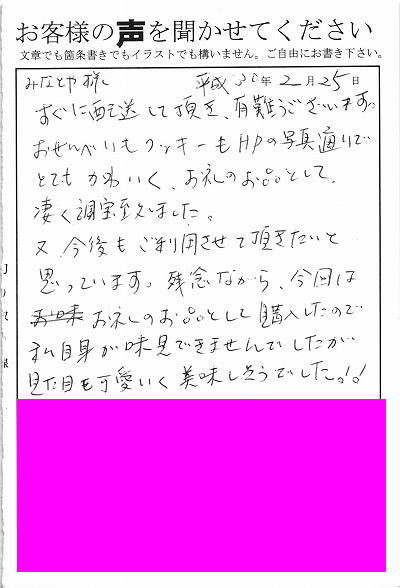 お客様の声を聞かせてください
文章でも箇条書きでもイラストでも構いません。ご自由にお書き下さい。
みなとや様 平成30年2月25日
すぐに配送して頂き、有難うございます。
おせんべいもクッキーもHPの写真通りで
とてもかわいく、お礼のお品として、
凄く調宝致しました。
又、今後もご利用させて頂きたいと
思っています。残念ながら、今回は
お礼のお品として購入したので
私自身が味見できませんでしたが
見た目も可愛いく美味しそうでした!!